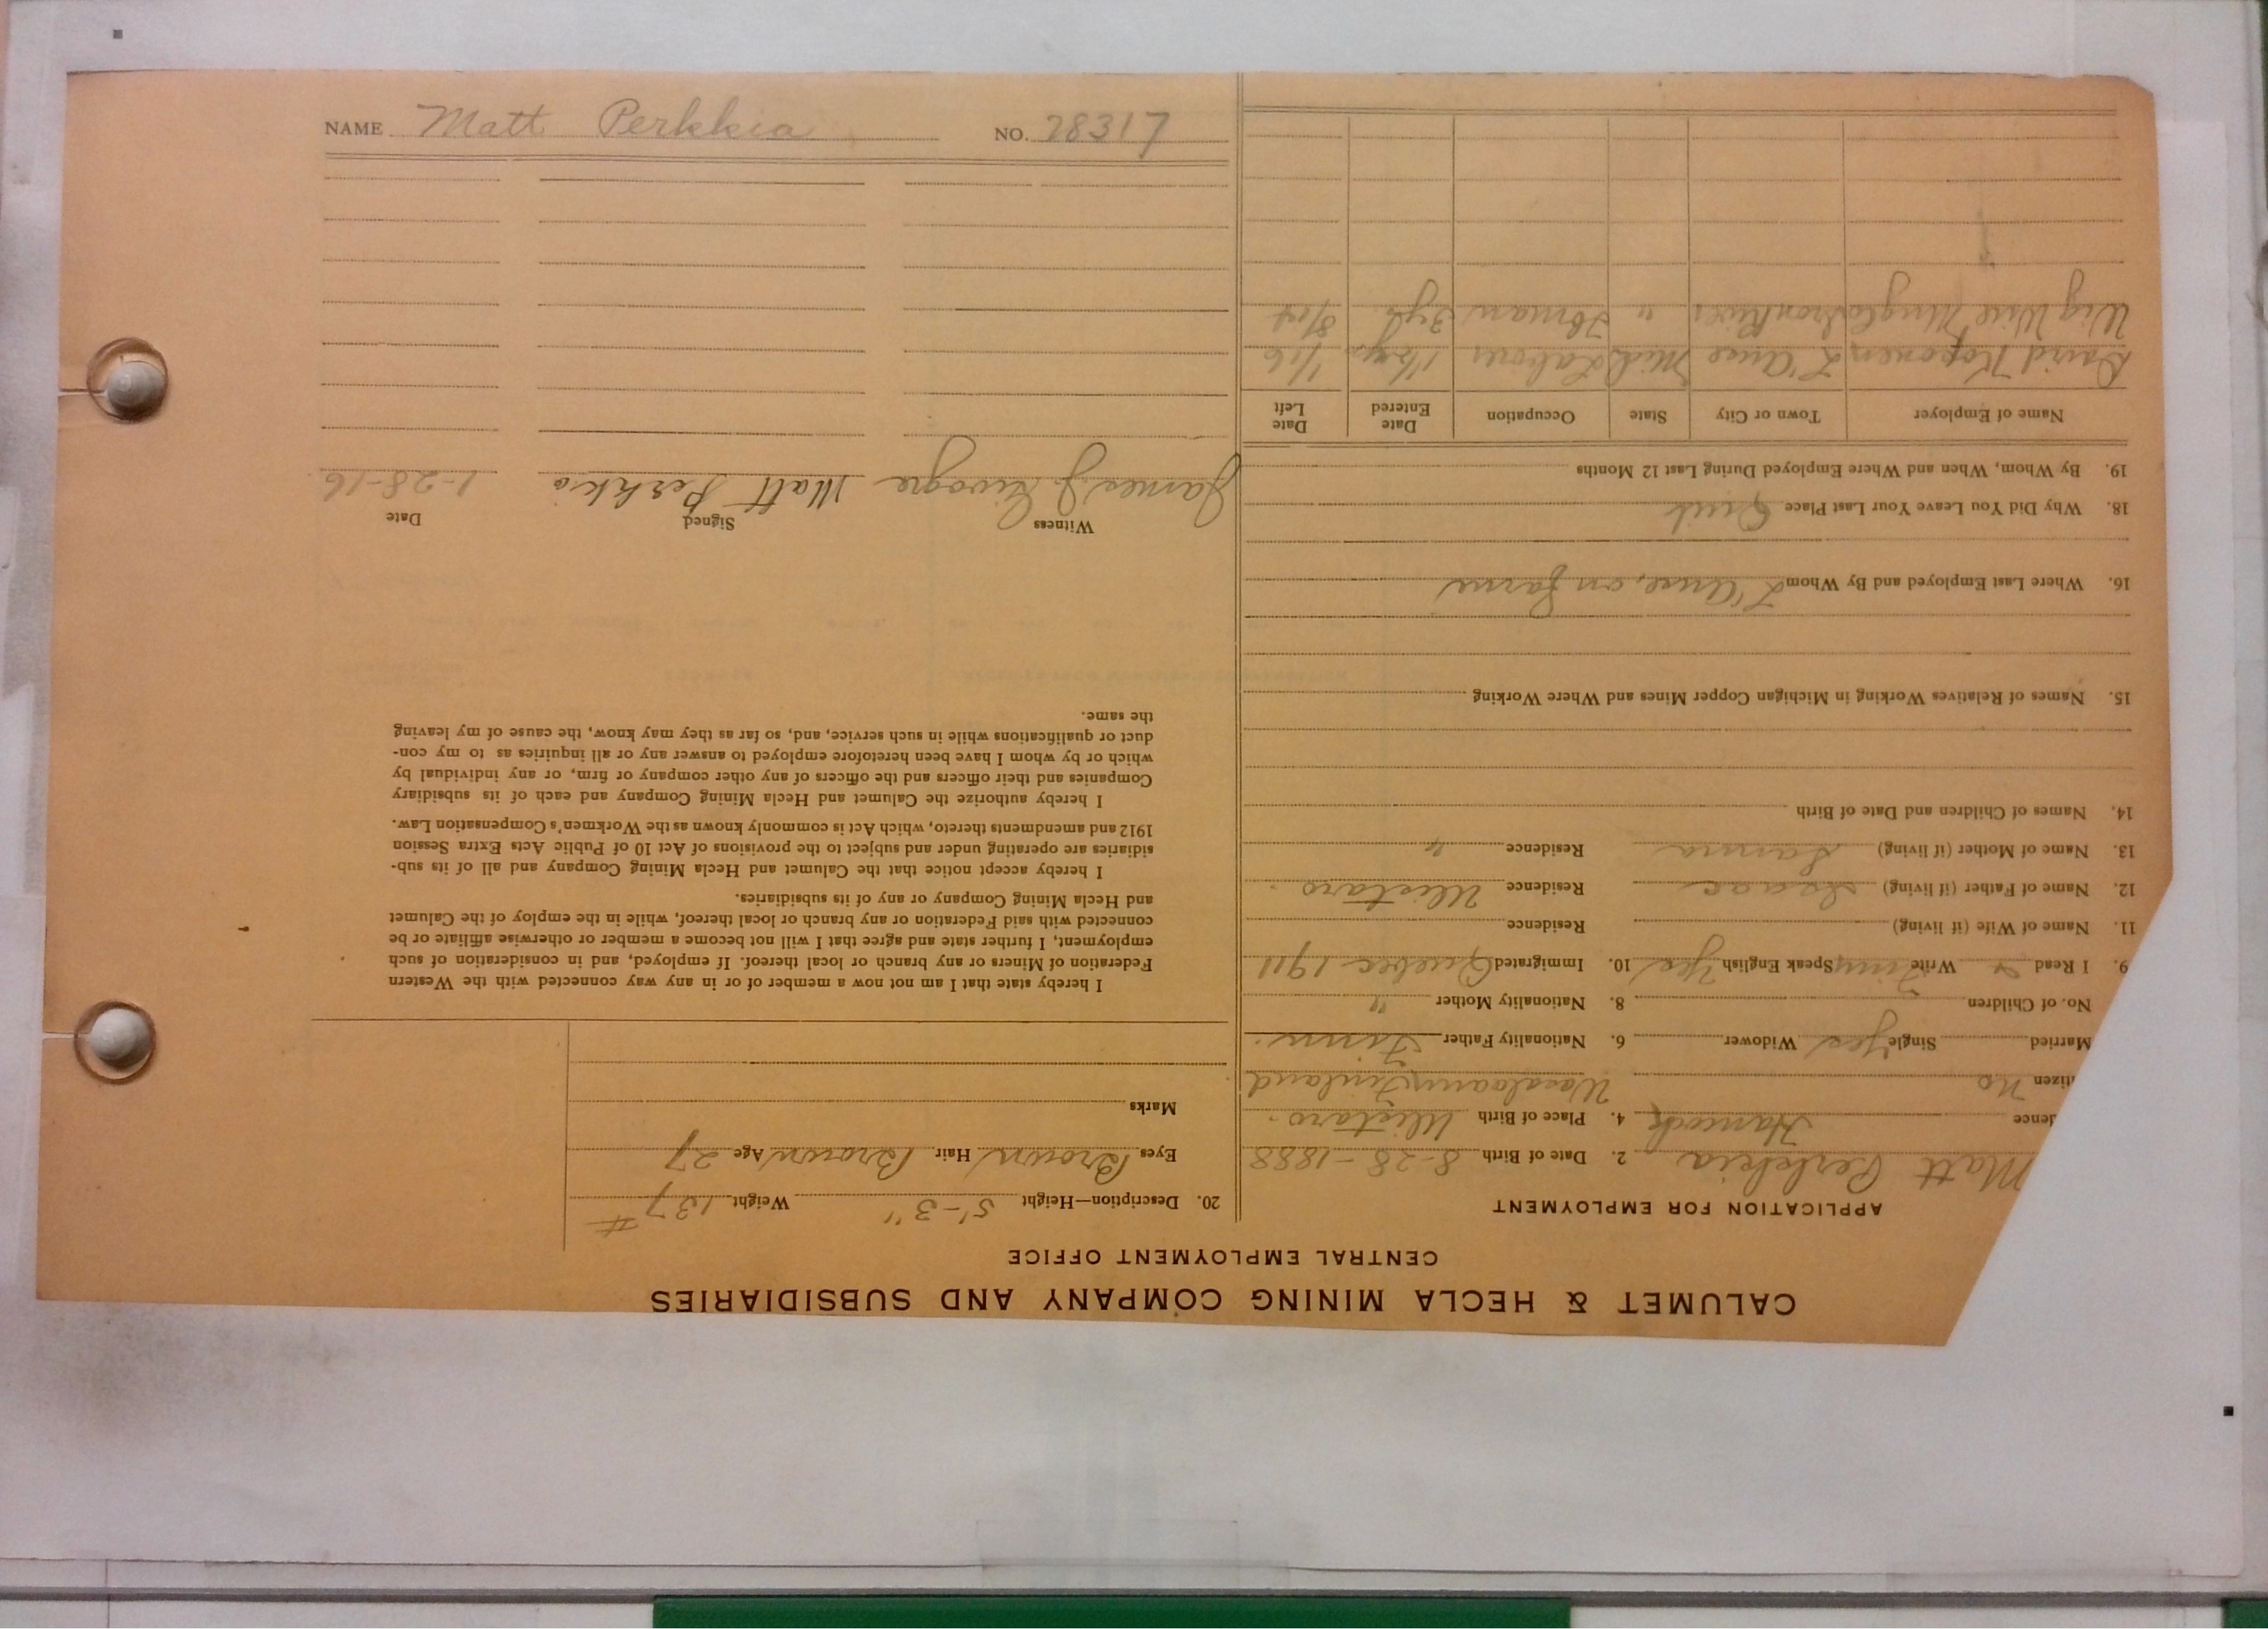 NAME Matt Perkkia NO. 28317
CALUMET & HECLA MINING COMPANY AND SUBSIDIARIES
CENTRAL EMPLOYMENT OFFICE
APPLICATION FOR EMPLOYMENT
Matt Perkkia 2. Date of Birth 8-28-1888
dence Hancock 4. Place of Birth Ulistaro.
tizen No Wasalaani Finland
Married Single Yes Widower 6. Nationality Father Finn.
No. of Children 8. Nationality Mother "
9. I Read " Write Finn Speak English Yes 10. Immigrated Quebec 1911
11. Name of Wife (if living) Residence
12. Name of Father (if living) Isaac Residence Ulistaro.
13. Name of Mother (if living) Sanna Residence "
14. Names of Children and Date of Birth
15. Names of Relatives Working in Michigan Copper Mines and Where Working
16. Where Last Employed and By Whom L'Anse, on farm
18. Why Did You Leave Your Last Place Quit
19. By Whom, When and Where Employed During Last 12 Months
Name of Employer Town or City State Occupation Date Entered Date Left
David Koponen L'Anse Mich Labour 1/16
Iron River " 3 yrs
20. Description—Height 5'-3" Weight 137 #
Eyes Brown Hair Brown Age 27
Marks
I hereby state that I am not now a member of or in any way connected with the Western
Federation of Miners or any branch or local thereof. If employed, and in consideration of such
employment, I further state and agree that I will not become a member or otherwise affiliate or be
connected with said Federation or any branch or local thereof, while in the employ of the Calumet
and Hecla Mining Company or any of its subsidiaries.
I hereby accept notice that the Calumet and Hecla Mining Company and all of its sub-
sidiaries are operating under and subject to the provisions of Act 10 of Public Acts Extra Session
1912 and amendments thereto, which Act is commonly known as the Workmen's Compensation Law.
I hereby authorize the Calumet and Hecla Mining Company and each of its subsidiary
Companies and their officers and the officers of any other company or firm, or any individual by
which or by whom I have been heretofore employed to answer any or all inquiries as to my con-
duct or qualifications while in such service, and, so far as they may know, the cause of my leaving
the same.
Witness Signed Date
James J. Matt Perkkio 1-28-16